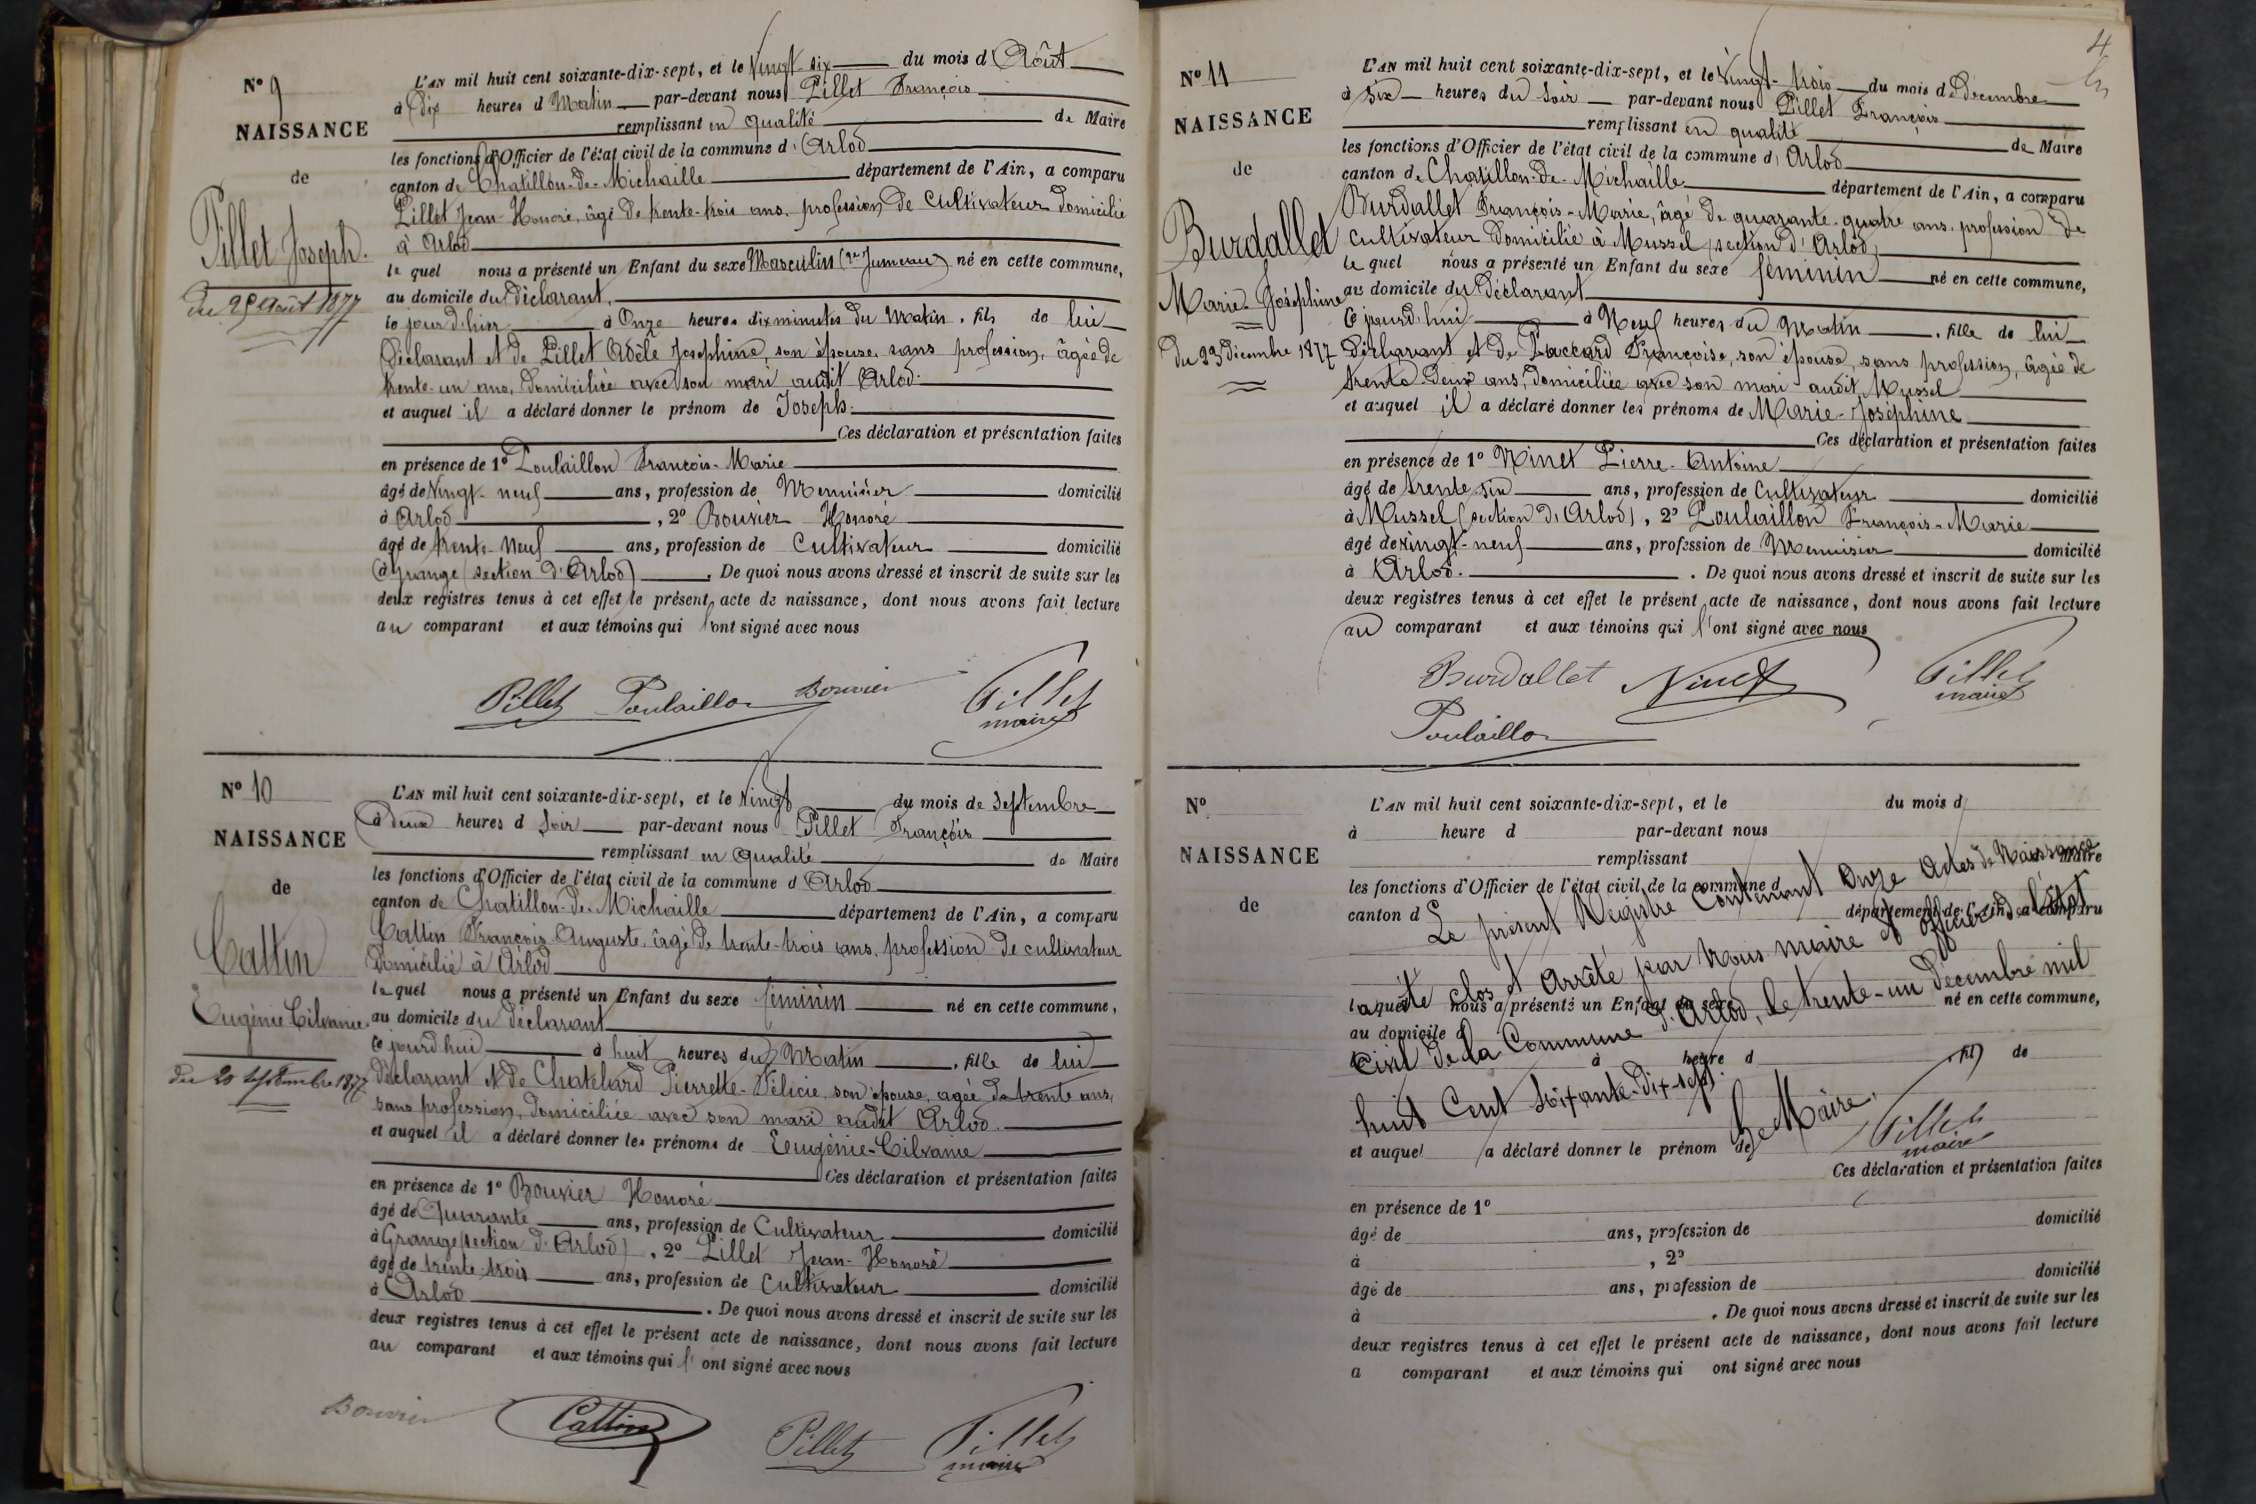 Nº 9
NAISSANCE
de
Pillet Joseph.
du 25 Août 1877
L'AN mil huit cent soixante-dix-sept, et le Vingt-six du mois d'Août
à Dix heures d Matin par-devant nous Pillet François
remplissant en qualité de Maire
les fonctions d'Officier de l'état civil de la commune d'Arlod
canton de Chatillon-de-Michaille département de l'Ain, a comparu
Pillet Jean-Honoré, âgé de trente-trois ans, profession de Cultivateur domicilié
à Arlod
le quel nous a présenté un Enfant du sexe Masculin (1er Jumeau) né en cette commune,
au domicile du déclarant,
le jour d'hier à Onze heures dix minutes du Matin, fils de lui
Déclarant et de Pillet Adèle Josephine, son épouse, sans profession, âgée de
trente-un ans, domiciliée avec son mari audit Arlod.
et auquel il a déclaré donner le prénom de Joseph.
Ces déclaration et présentation faites
en présence de 1º Poulaillon François-Marie
âgé de Vingt-neuf ans, profession de Menuisier domicilié
à Arlod, 2º Bouvier Honoré
âgé de trente-neuf ans, profession de Cultivateur domicilié
à Grange (section d'Arlod). De quoi nous avons dressé et inscrit de suite sur les
deux registres tenus à cet effet le présent acte de naissance, dont nous avons fait lecture
au comparant et aux témoins qui l'ont signé avec nous
Pillet Poulaillon Bouvier Pillet
maire
Nº 10
NAISSANCE
de
Cattin
Eugénie Cilvanie
du 20 septembre 1877
L'AN mil huit cent soixante-dix-sept, et le Vingt du mois de Septembre
à deux heures d Soir par-devant nous Pillet François
remplissant en qualité de Maire
les fonctions d'Officier de l'état civil de la commune d Arlod
canton de Chatillon-de-Michaille département de l'Ain, a comparu
Cattin François Auguste, âgé de trente-trois ans, profession de cultivateur
domicilié à Arlod
le quel nous a présenté un Enfant du sexe féminin né en cette commune,
au domicile du déclarant
ce jourd'hui à huit heures du Matin, fille de lui
déclarant et de Chatelard Pierrette-Félicie, son épouse, agée de trente ans,
sans profession, domiciliée avec son mari audit Arlod.
et auquel il a déclaré donner les prénoms de Eugénie-Cilvanie
Ces déclaration et présentation faites
en présence de 1º Bouvier Honoré
âgé de Quarante ans, profession de Cultivateur domicilié
à Grange (section d'Arlod), 2º Pillet Jean-Honoré
âgé de trente-trois ans, profession de Cultivateur domicilié
à Arlod. De quoi nous avons dressé et inscrit de suite sur les
deux registres tenus à cet effet le présent acte de naissance, dont nous avons fait lecture
au comparant et aux témoins qui l'ont signé avec nous
Bouvier Cattin Pillet Pillet
maire
4
Nº 11
NAISSANCE
de
Burdallet
Marie-Joséphine
du 23 Décembre 1877
L'AN mil huit cent soixante-dix-sept, et le Vingt-trois du mois de Décembre
à six heures du Soir par-devant nous Pillet François
remplissant en qualité de Maire
les fonctions d'Officier de l'état civil de la commune d'Arlod
canton de Chatillon-de-Michaille département de l'Ain, a comparu
Burdallet François-Marie, âgé de quarante-quatre ans, profession de
cultivateur domicilié à Mussel (section d'Arlod)
le quel nous a présenté un Enfant du sexe féminin né en cette commune,
au domicile du Déclarant
Ce jourd'hui à Neuf heures du Matin, fille de lui
Déclarant et de Paccard Françoise, son épouse, sans profession, âgée de
trente-deux ans, domiciliée avec son mari audit Mussel
et auquel il a déclaré donner les prénoms de Marie-Joséphine
Ces déclaration et présentation faites
en présence de 1º Ninet Pierre-Antoine
âgé de trente-six ans, profession de Cultivateur domicilié
à Mussel (section d'Arlod), 2º Poulaillon François-Marie
âgé de vingt-neuf ans, profession de Menuisier domicilié
à Arlod. De quoi nous avons dressé et inscrit de suite sur les
deux registres tenus à cet effet le présent acte de naissance, dont nous avons fait lecture
au comparant et aux témoins qui l'ont signé avec nous
Burdallet Ninet Pillet
maire
Poulaillon
Nº
NAISSANCE
de
L'AN mil huit cent soixante-dix-sept, et le du mois d
à heure d par-devant nous
remplissant Maire
les fonctions d'Officier de l'état civil de la commune d
canton d département de l'Ain, a comparu
Le présent Registre Contenant Onze Actes de Naissance
a été clos et Arrêté par Nous maire et officier de l'état
Civil de la Commune d'Arlod, le trente-un Décembre mil
huit Cent Soixante-Dix-sept.
Le Maire,
Pillet
maire
le quel nous a présenté un Enfant du sexe né en cette commune,
au domicile d
à heure d , fil de
et auquel a déclaré donner le prénom de
Ces déclaration et présentation faites
en présence de 1º
âgé de ans, profession de domicilié
à , 2º
âgé de ans, profession de domicilié
à . De quoi nous avons dressé et inscrit de suite sur les
deux registres tenus à cet effet le présent acte de naissance, dont nous avons fait lecture
a comparant et aux témoins qui ont signé avec nous